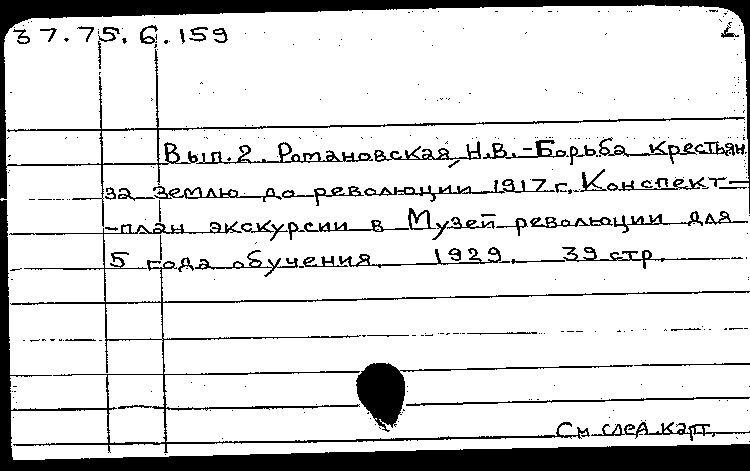 37.75.6.159
2
Вып.2. Романовская, Н.В.-Борьба крестьян
за землю до революции 1917 г. Конспект-
-план экскурсии в Музей революции для
5 года обучения. 1929. 39 стр.
См след карт.